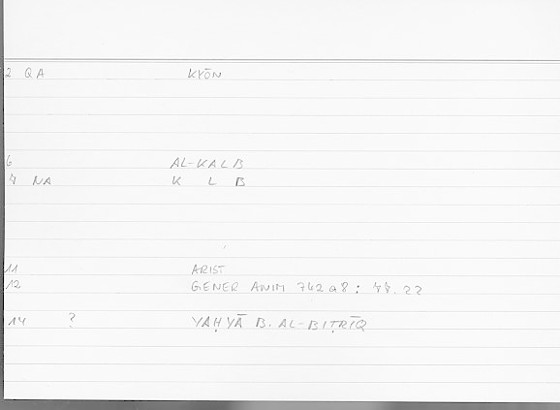 2 QA KYŌN
6 AL-KALB
7 NA K L B
11 ARIST
12 GENER ANIM 742a8: 77.22
14 ? YAḤYĀ B. AL-BIṬRĪQ